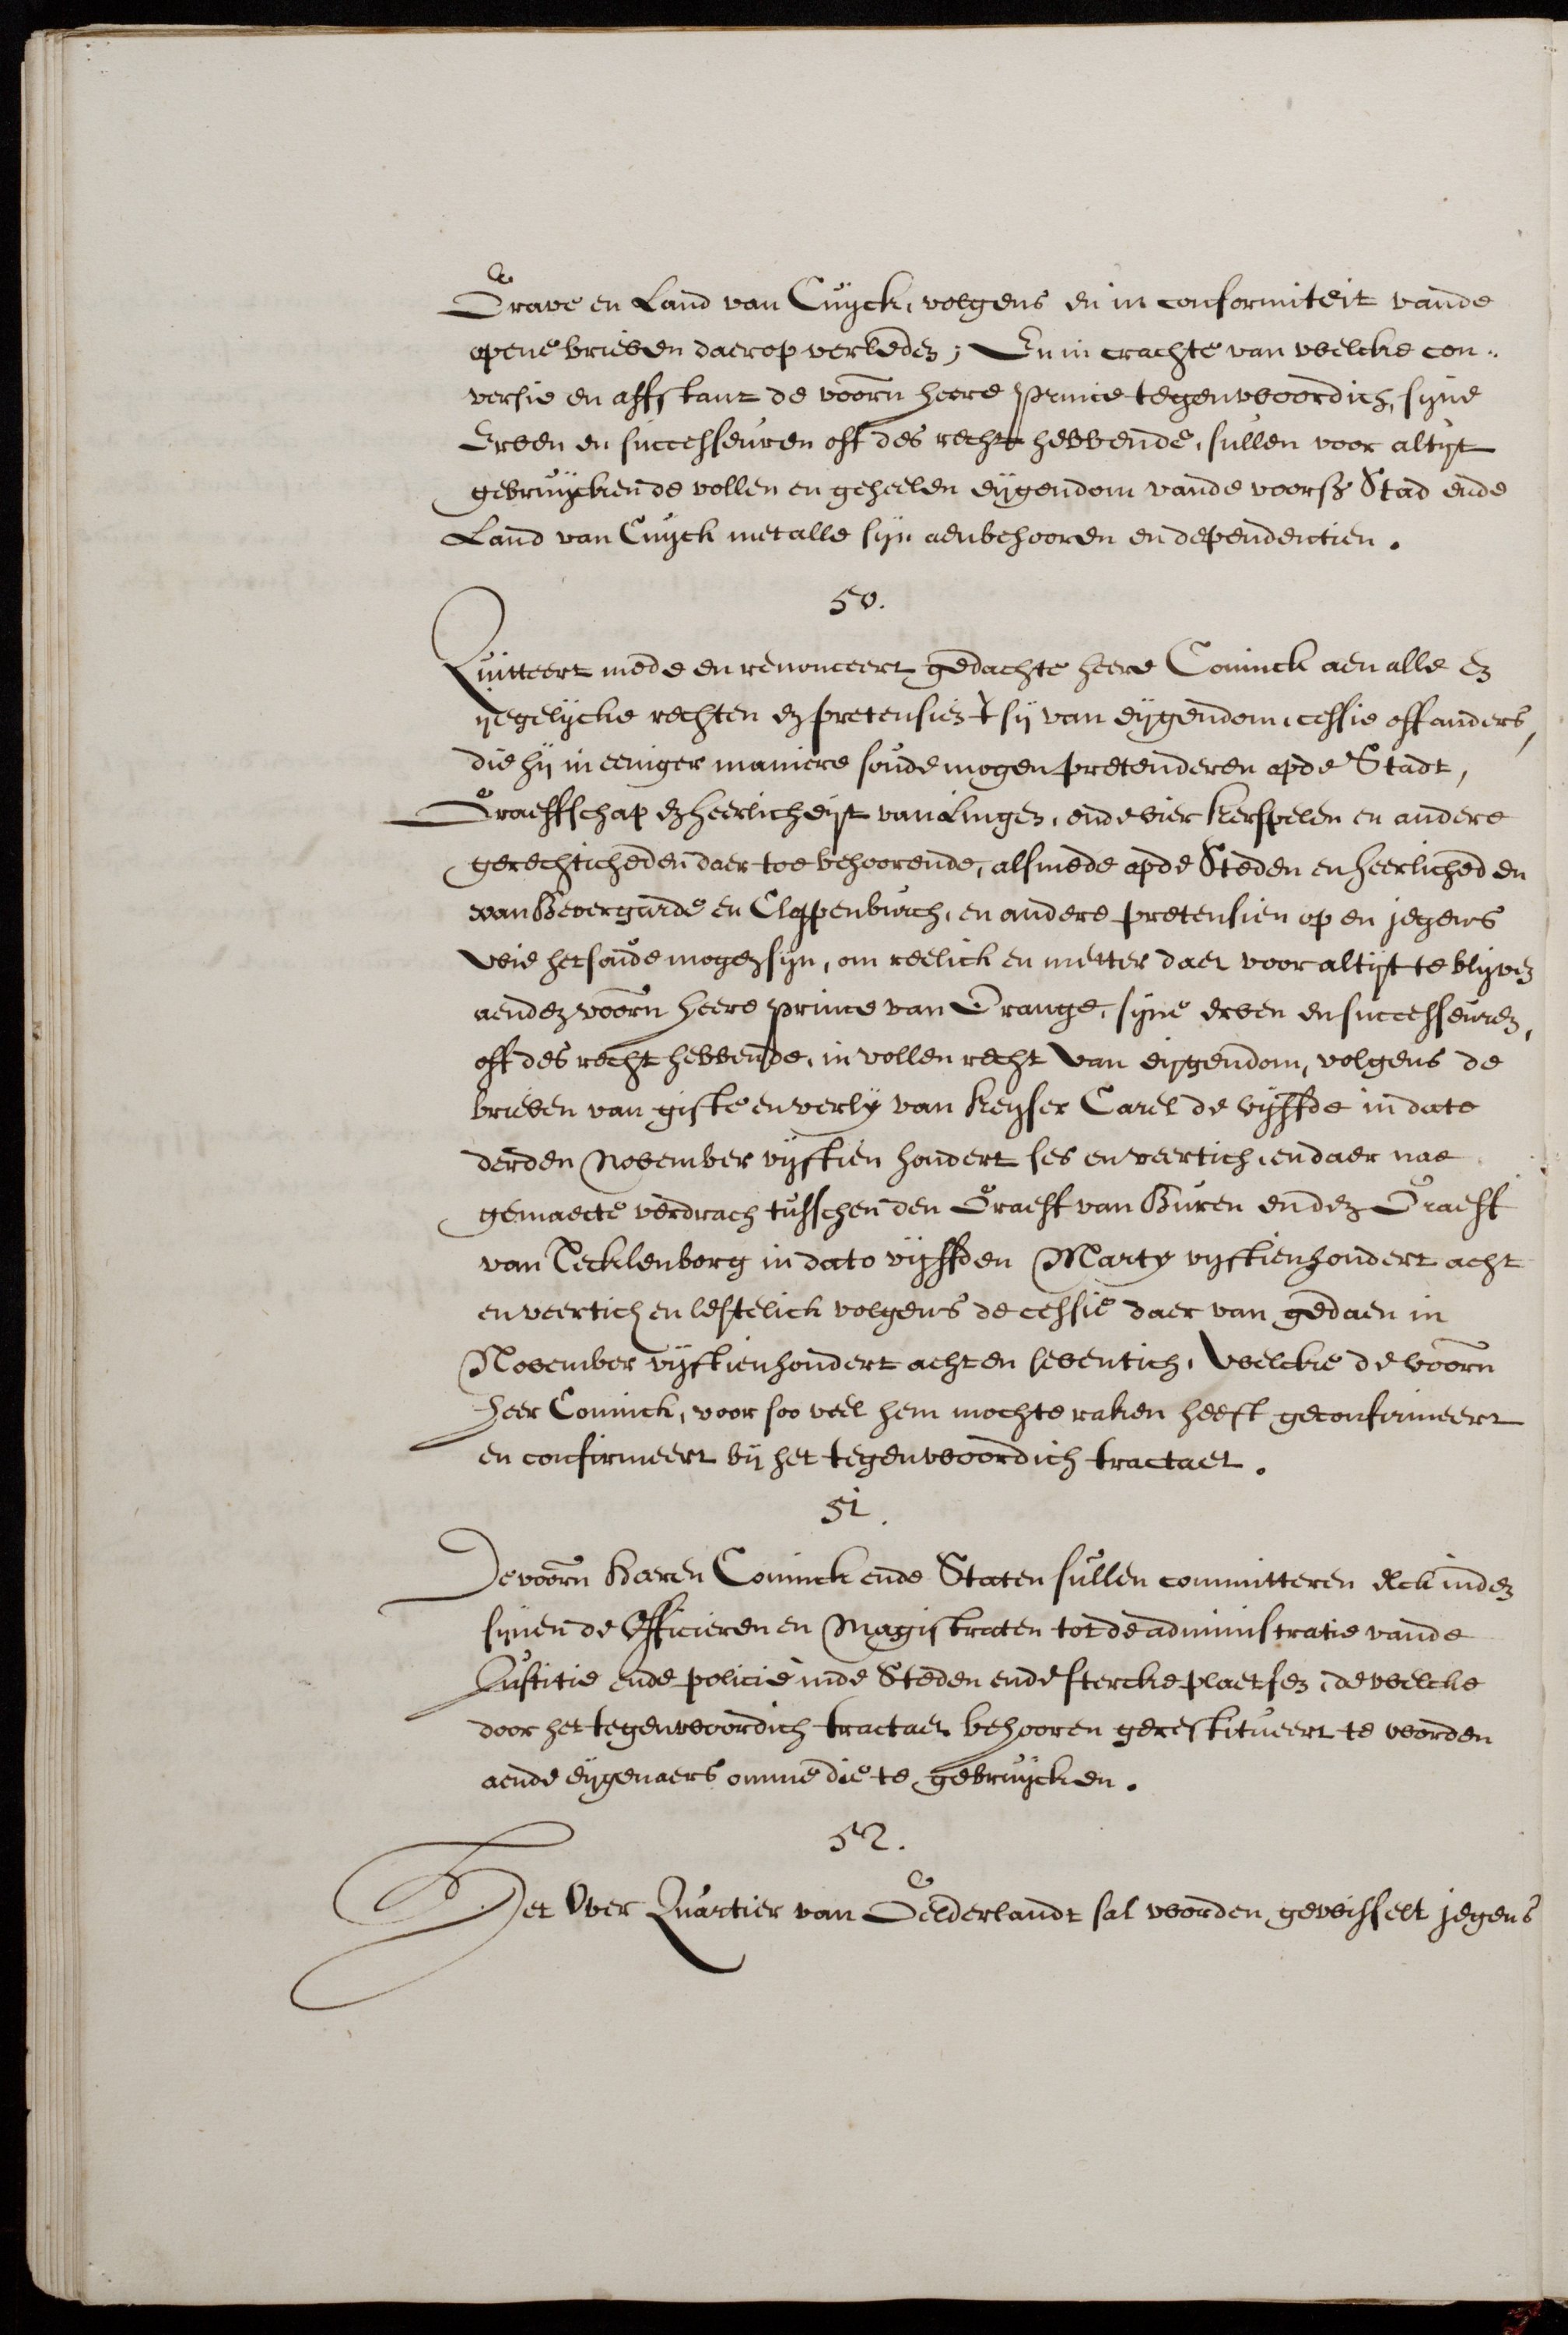 Grave en Land van Cuÿck, volgens en in conformiteit vande
opene brieven daerop verleden; En in crachte van welcke con-
versie en affstant de voorn heere Prince tegenwoordich, syne
Erven en successeuren off des recht hebbende, sullen voor altyt
gebruÿcken de vollen en geheelen eÿgendom vande voorsz Stad ende
Land van Cuyck met alle syn aenbehooren en dependentien.
50.
Quitteert mede en renonceert gedachte heere Coninck aen alle en
yegelÿcke rechten en pretensien t sÿ van eÿgendom, cessie off anders,
die hÿ in eeniger maniere soude mogen pretenderen opde Stadt,
Graeffschap en heerlicheÿt van Lingen, ende vier kerspelen en andere
gerechticheden daer toe behoorende, als mede opde Steden en heerlicheden
van Bevergarde en Cloppenburch, en andere pretensien op en jegens
wie het soude mogen syn, om reelick en metter daet voor altyt te blyven
aenden voorn heere Prince van Orange, syne erven en successeuren,
off des recht hebbende, in vollen recht van eijgendom, volgens de
brieven van gifte en verlÿ van Keyser Carel de vÿffde in dato
derden November vÿftien hondert ses en veertich, en daer nae
gemaecte verdrach tusschen den Graeff van Buren en den Graeff
van Tecklenborg in dato vÿffden Marty vyftienhondert acht
en veertich en lestelick volgens de cessie daer van gedaen in
November vÿftienhondert acht en seventich, welcke de voorn
Heer Coninck, voor soo veel hem mochte raken heeft geconfirmeert
en confirmeert bÿ het tegenwoordich tractaet.
51.
De voorn Heeren Coninck ende Staten sullen committeren elck inden
synen de Officieren en Magistraten tot de administratie vande
Justitie ende policie inde Steden ende stercke plaetsen, de welcke
door het tegenwoordich tractaet behooren gerestitueert te worden
aende eÿgenaers omme die te gebruÿcken.
52.
Het Over Quartier van Gelderlandt sal worden gewisselt jegens